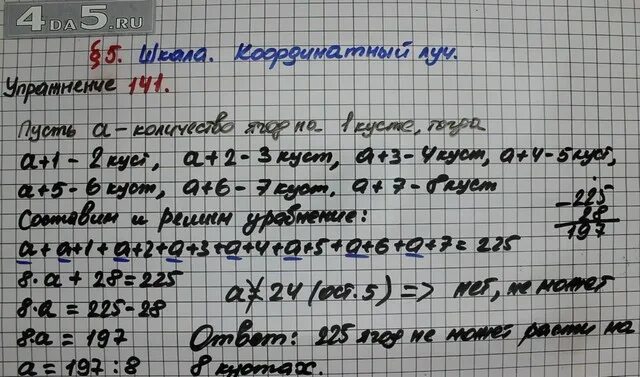 4DA5.RU
§5. Шкала. Координатный луч.
Упражнение 141.
Пусть a – количество ягод на 1 кусте, тогда
a+1 – 2 куст, a+2 – 3 куст, a+3 – 4 куст, a+4 – 5 куст,
a+5 – 6 куст, a+6 – 7 куст, a+7 – 8 куст
Составим и решим уравнение:
a+a+1+a+2+a+3+a+4+a+5+a+6+a+7=225
8·a+28=225
8·a=225-28
8a=197
a=197:8
-225
28
197
a≠24 (ост.5) => нет, не может
Ответ: 225 ягод не может расти на
8 кустах.